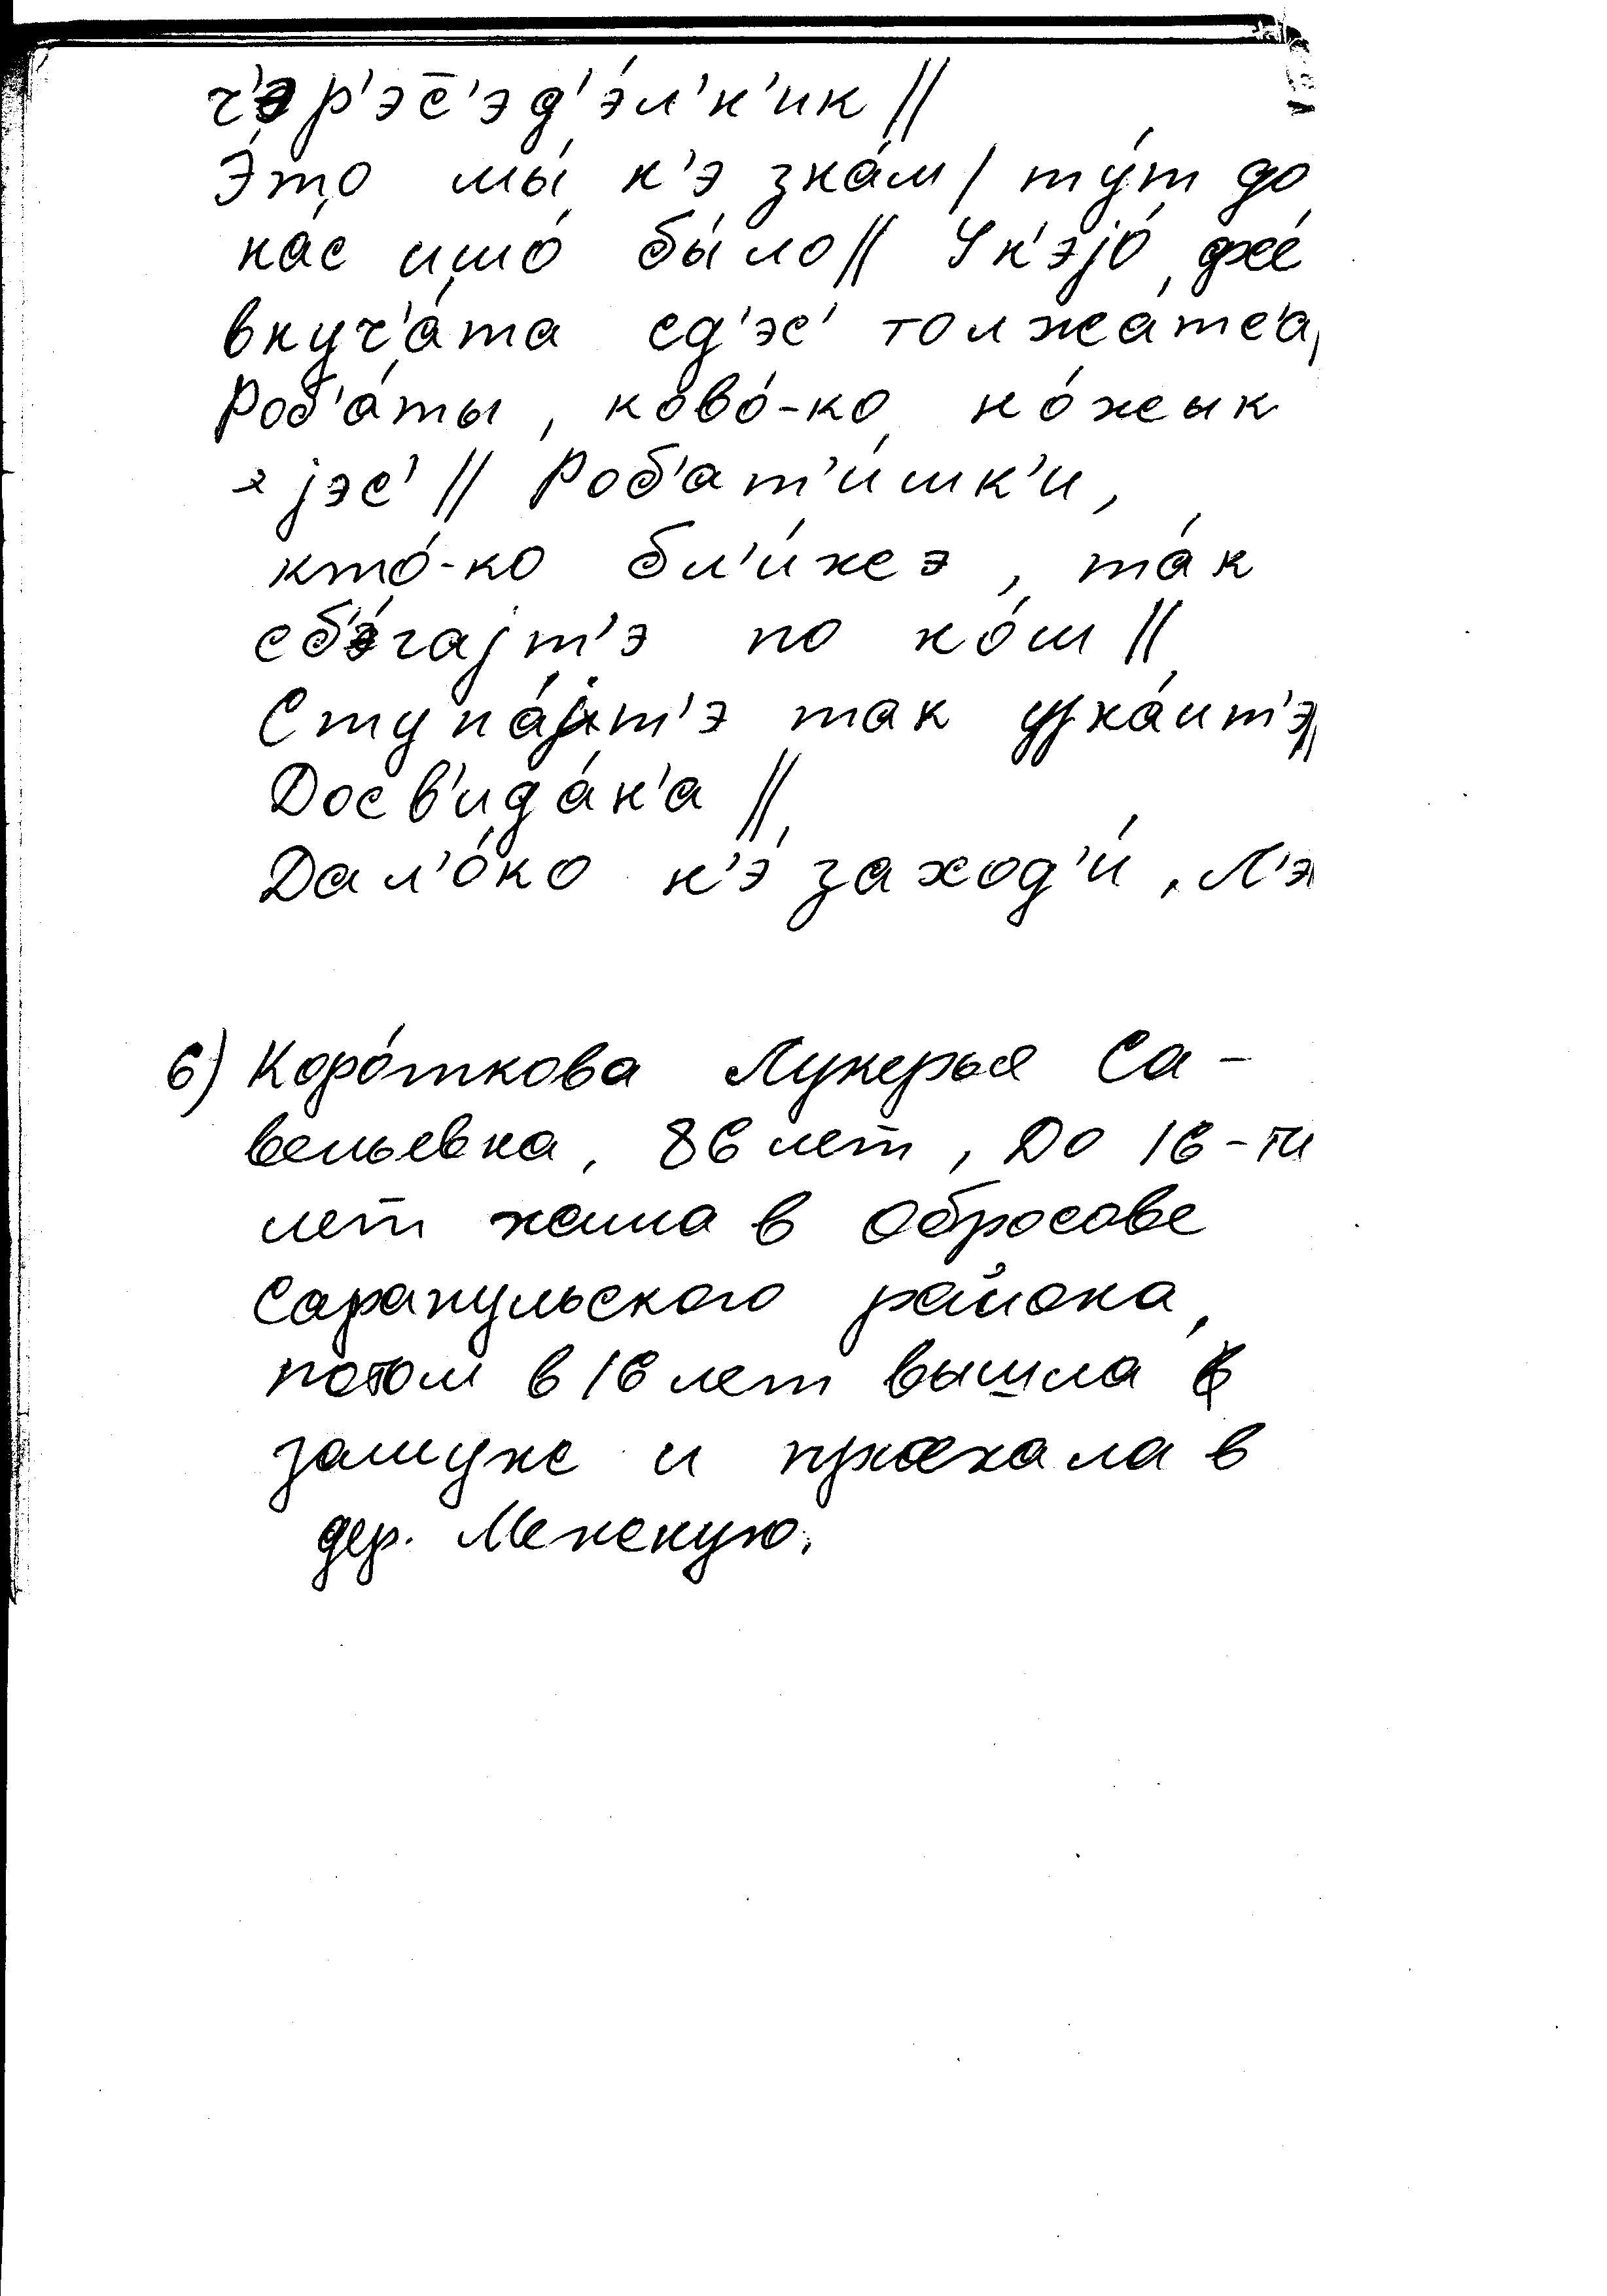 ч'эр'эс̄'эд'э́л'н'ик ||
Э́то мы́ н'э зна́м / ту́т до
на́с ишо́ бы́ло || Ун'эjо́ фс́е
внуч'а́та сд'эс' толжа́тс'а,
Роб'а́ты, ково́-ко но́жык
jэс' || Роб'ат'и́шк'и,
кто́-ко бл'и́жэ, та́к
сб'э́гаjт'э по но́ш ||
Ступа́jт'э так узна́ит'э ||
Досв'ида́н'а ||
Дал'о́ко н'э́ заход'и́, Л'э
6) Коро́ткова Лукерья Са-
вельевна, 86 лет, До 16-ти
лет жила в Обросове
Сарапульского района,
потом в 16 лет вышла
замуж и приехала в
дер. Менскую.